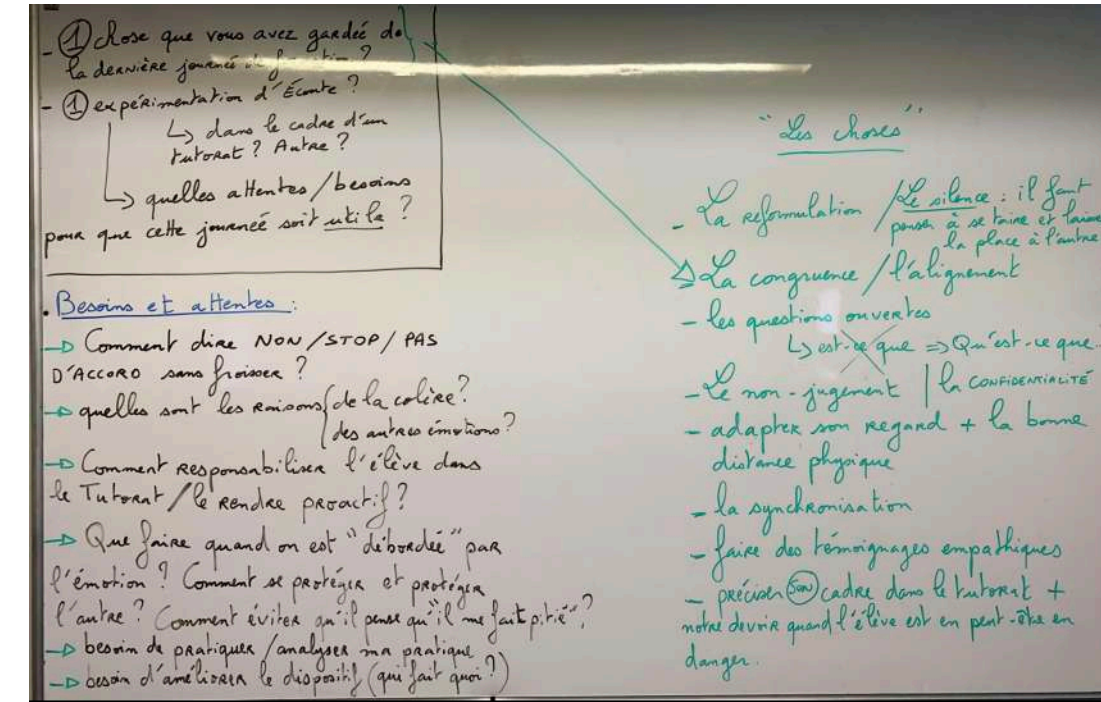 - ① chose que vous avez gardée de
la dernière journée de formation ?
- ① expérimentation d'Écoute ?
↳ dans le cadre d'un
tutorat ? Autre ?
↳ quelles attentes / besoins
pour que cette journeé soit utile ?
. Besoins et attentes :
→ Comment dire NON / STOP / PAS
D'ACCORD sans froisser ?
→ quelles sont les raisons de la colère ?
des autres émotions ?
→ Comment responsabiliser l'élève dans
le Tutorat / le rendre proactif ?
→ Que faire quand on est "débordée" par
l'émotion ? Comment se protéger et protéger
l'autre ? Comment éviter qu'il pense qu'"il me fait pitié" ?
→ besoin de pratiquer / analyser ma pratique
→ besoin d'améliorer le dispositif (qui fait quoi ?)
"Les choses"
- La reformulation / Le silence : il faut
penser à se taire et laisser
la place à l'autre
La congruence / l'alignement
- les questions ouvertes
↳ est-ce que => Qu'est-ce que...
- Le non-jugement | la CONFIDENTIALITÉ
- adapter son regard + la bonne
distance physique
- la synchronisation
- faire des témoignages empathiques
- préciser SON cadre dans le tutorat +
notre devoir quand l'élève est en peut-être en
danger.